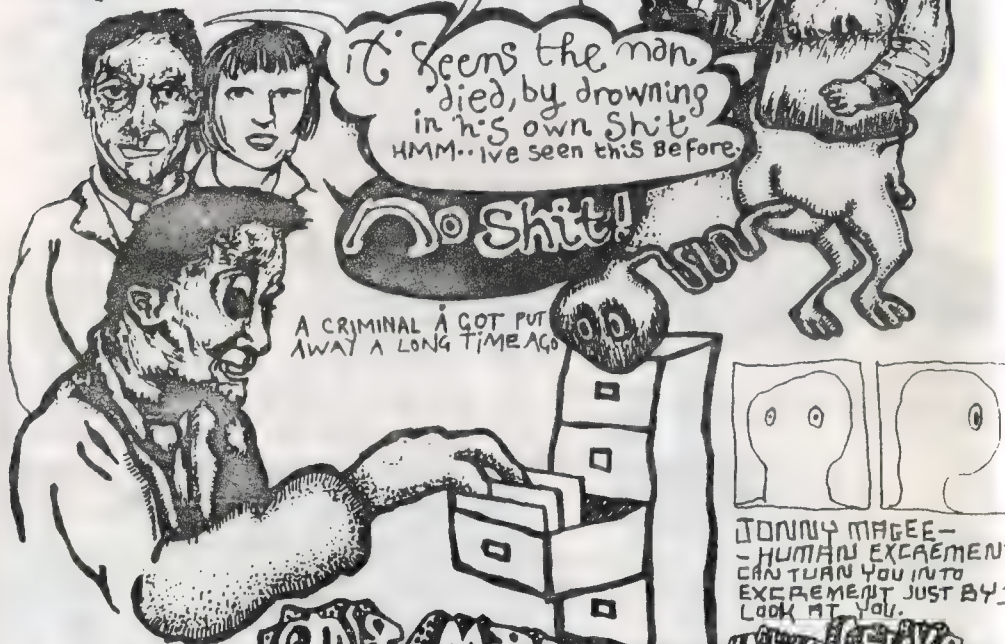 it seems the man
died, by drowning
in his own Shit
HMM.. ive seen this Before.
Shit!
A CRIMINAL A GOT PUT
AWAY A LONG TIME AGO
JONNY MAGEE-
- HUMAN EXCREMEN
CAN TURN YOU INTO
EXCREMENT JUST BY
LOOK AT YOU.